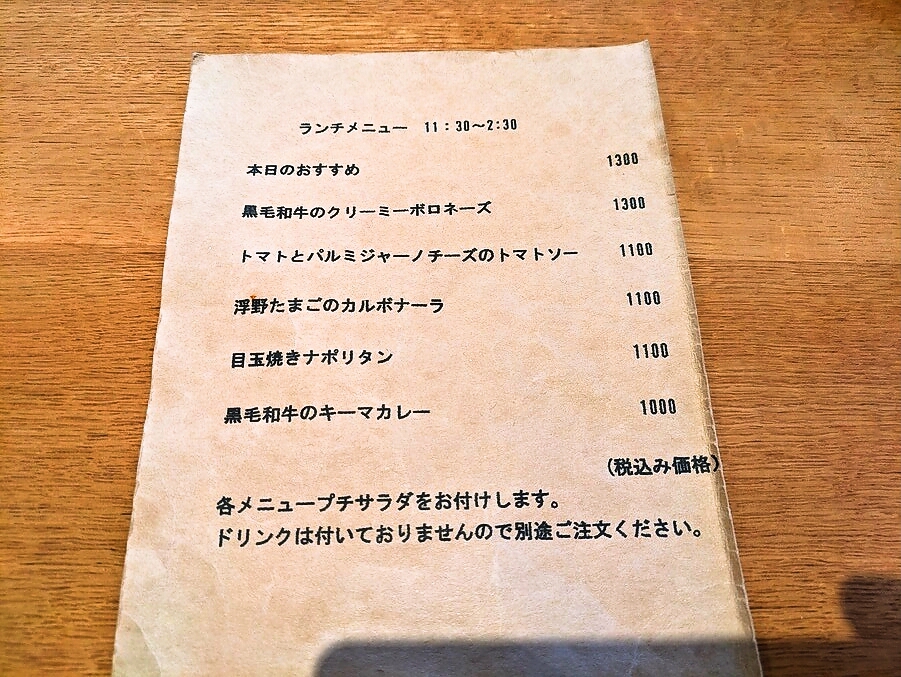 ランチメニュー 11：30～2:30
本日のおすすめ 1300
黒毛和牛のクリーミーボロネーズ 1300
トマトとパルミジャーノチーズのトマトソー 1100
浮野たまごのカルボナーラ 1100
目玉焼きナポリタン 1100
黒毛和牛のキーマカレー 1000
(税込み価格)
各メニュープチサラダをお付けします。
ドリンクは付いておりませんので別途ご注文ください。